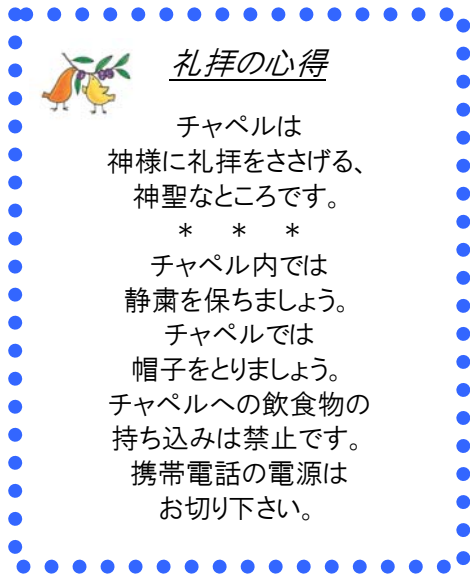 礼拝の心得
チャペルは
神様に礼拝をささげる、
神聖なところです。
* * *
チャペル内では
静粛を保ちましょう。
チャペルでは
帽子をとりましょう。
チャペルへの飲食物の
持ち込みは禁止です。
携帯電話の電源は
お切り下さい。